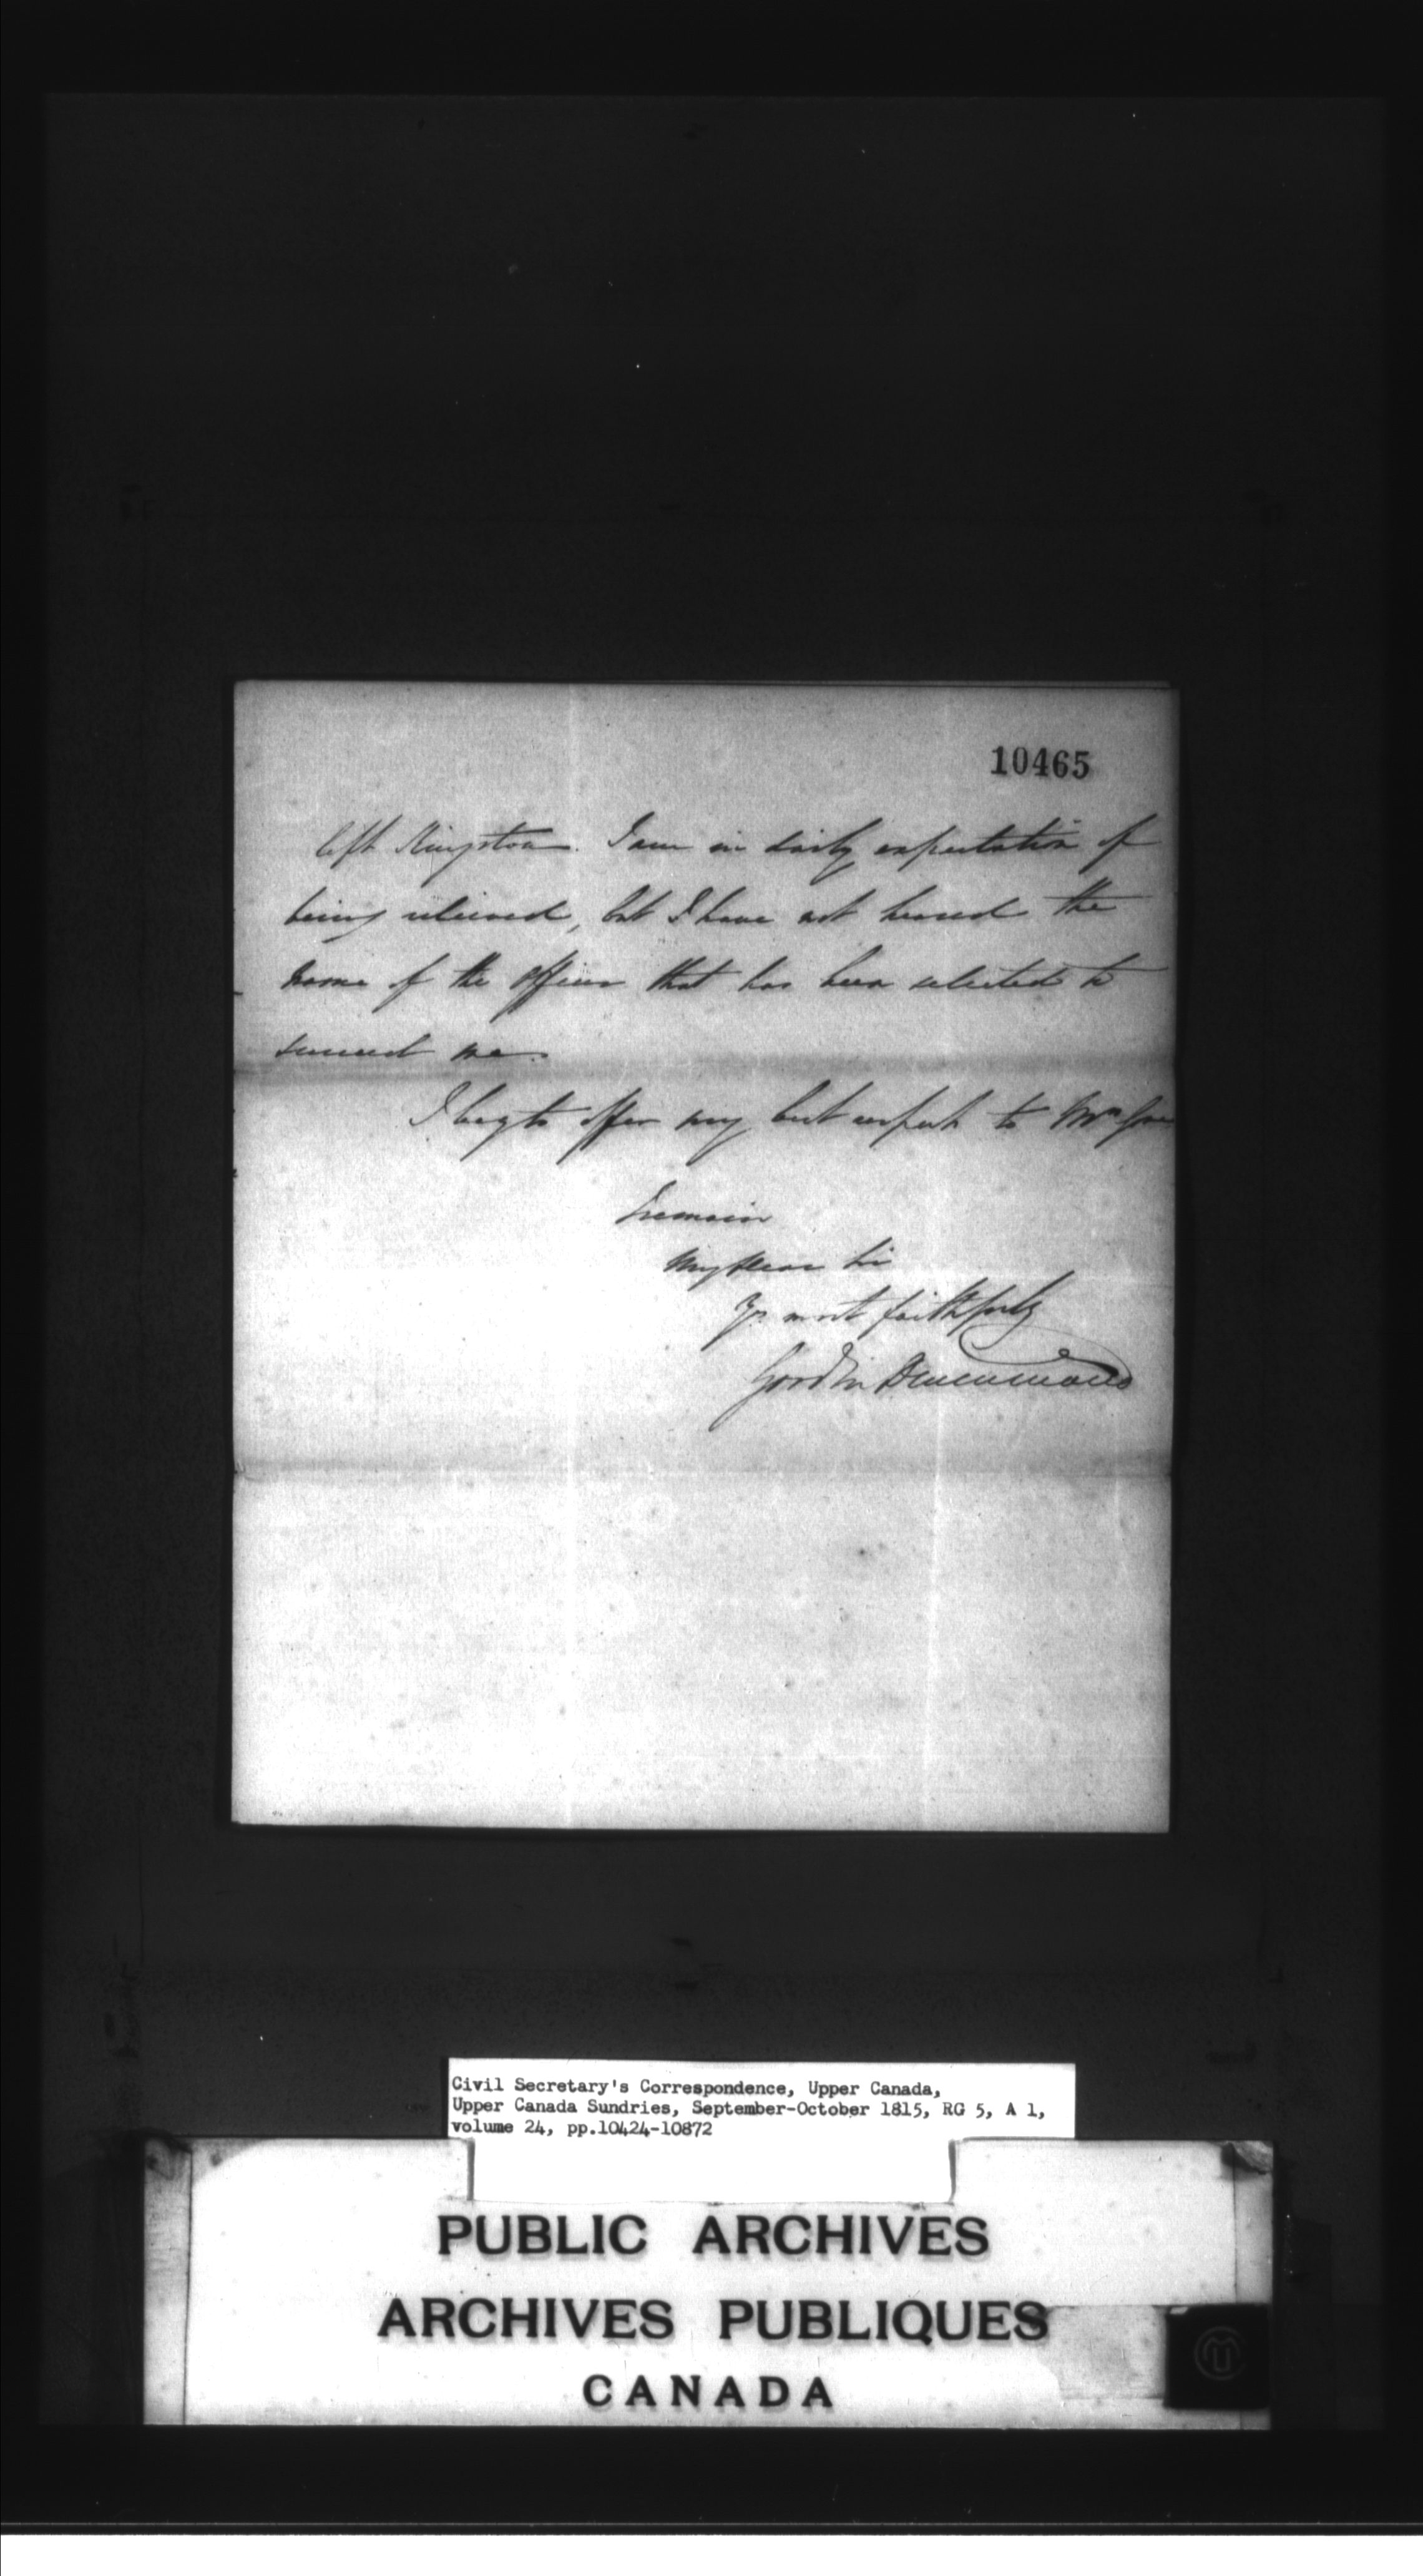 10465
left Kingston. I am in daily expectation of
being relieved, but I have not heard the
name of the Officer that has been selected to
succeed me.
I beg to offer my best respects to Mrs Gore
I remain
My dear Sir
Yrs most faithfully
Gordon Drummond
Civil Secretary's Correspondence, Upper Canada,
Upper Canada Sundries, September-October 1815, RG 5, A 1,
volume 24, pp.10424-10872
PUBLIC ARCHIVES
ARCHIVES PUBLIQUES
CANADA